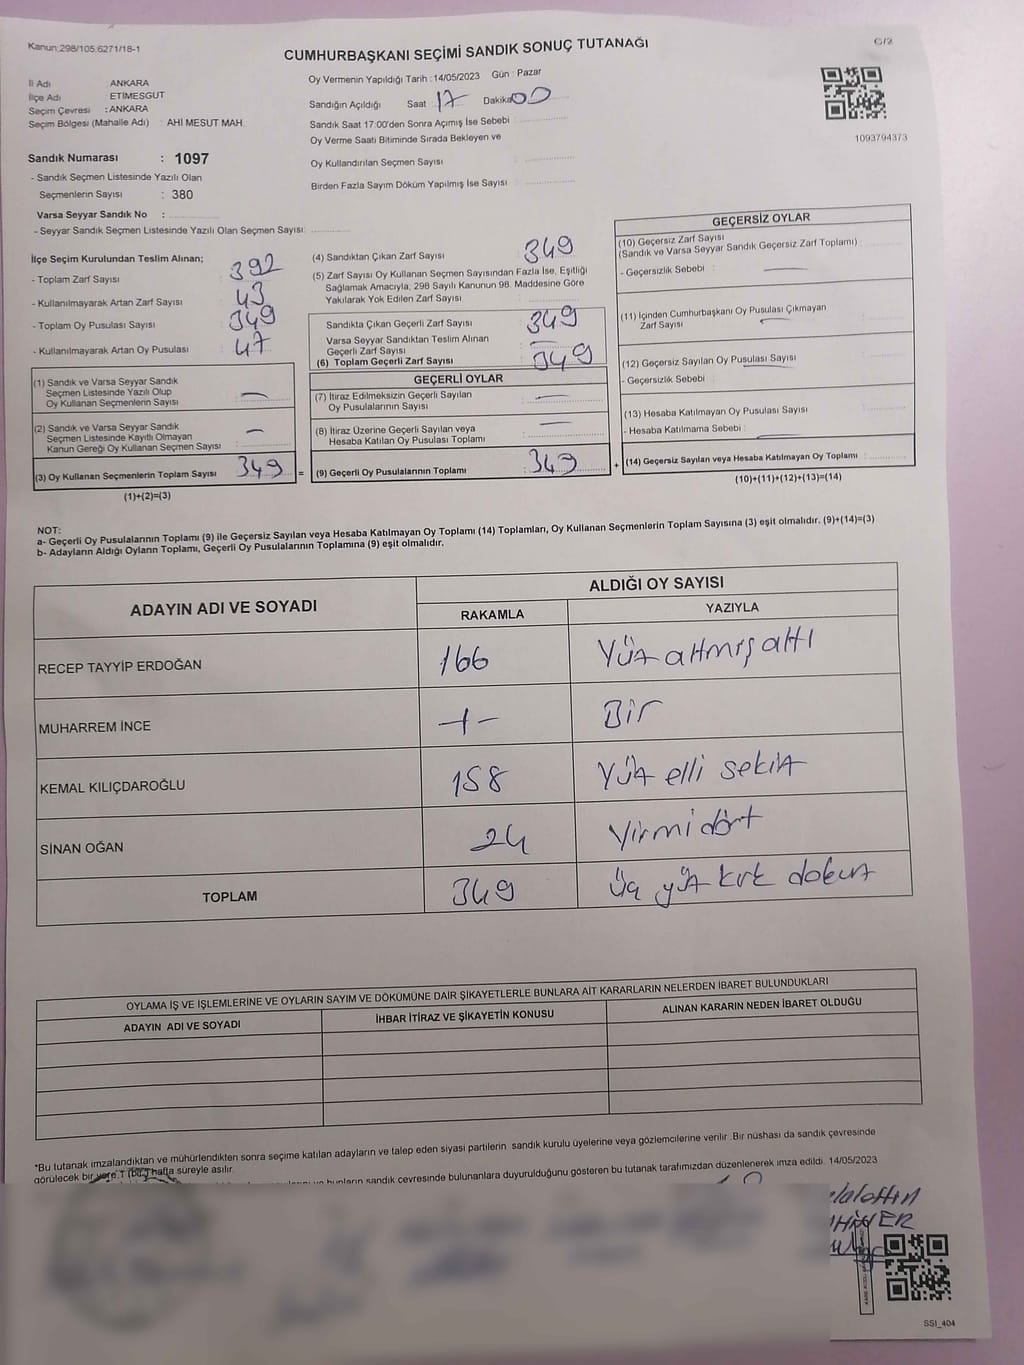 Kanun:298/105.6271/18-1
CUMHURBAŞKANI SEÇİMİ SANDIK SONUÇ TUTANAĞI
C/2
İl Adı : ANKARA
İlçe Adı : ETİMESGUT
Seçim Çevresi : ANKARA
Seçim Bölgesi (Mahalle Adı) : AHİ MESUT MAH.
Oy Vermenin Yapıldığı Tarih : 14/05/2023 Gün : Pazar
Sandığın Açıldığı Saat 17 Dakika 00
Sandık Saat 17:00'den Sonra Açımış İse Sebebi :
Oy Verme Saati Bitiminde Sırada Bekleyen ve
Oy Kullandırılan Seçmen Sayısı :
Birden Fazla Sayım Döküm Yapılmış İse Sayısı :
1093794373
Sandık Numarası : 1097
- Sandık Seçmen Listesinde Yazılı Olan
Seçmenlerin Sayısı : 380
Varsa Seyyar Sandık No :
- Seyyar Sandık Seçmen Listesinde Yazılı Olan Seçmen Sayısı:
İlçe Seçim Kurulundan Teslim Alınan;
- Toplam Zarf Sayısı : 392
- Kullanılmayarak Artan Zarf Sayısı : 43
- Toplam Oy Pusulası Sayısı : 349
- Kullanılmayarak Artan Oy Pusulası : 47
(1) Sandık ve Varsa Seyyar Sandık
Seçmen Listesinde Yazılı Olup
Oy Kullanan Seçmenlerin Sayısı : —
(2) Sandık ve Varsa Seyyar Sandık
Seçmen Listesinde Kayıtlı Olmayan
Kanun Gereği Oy Kullanan Seçmen Sayısı : —
(3) Oy Kullanan Seçmenlerin Toplam Sayısı 349 =
(1)+(2)=(3)
(4) Sandıktan Çıkan Zarf Sayısı : 349
(5) Zarf Sayısı Oy Kullanan Seçmen Sayısından Fazla İse, Eşitliği
Sağlamak Amacıyla, 298 Sayılı Kanunun 98. Maddesine Göre
Yakılarak Yok Edilen Zarf Sayısı :
Sandıkta Çıkan Geçerli Zarf Sayısı : 349
Varsa Seyyar Sandıktan Teslim Alınan
Geçerli Zarf Sayısı : —
(6) Toplam Geçerli Zarf Sayısı : 349
GEÇERLİ OYLAR
(7) İtiraz Edilmeksizin Geçerli Sayılan
Oy Pusulalarının Sayısı : —
(8) İtiraz Üzerine Geçerli Sayılan veya
Hesaba Katılan Oy Pusulası Toplamı : —
(9) Geçerli Oy Pusulalarının Toplamı : 349 +
GEÇERSİZ OYLAR
(10) Geçersiz Zarf Sayısı
(Sandık ve Varsa Seyyar Sandık Geçersiz Zarf Toplamı) :
- Geçersizlik Sebebi : —
(11) İçinden Cumhurbaşkanı Oy Pusulası Çıkmayan
Zarf Sayısı : —
(12) Geçersiz Sayılan Oy Pusulası Sayısı : —
- Geçersizlik Sebebi :
(13) Hesaba Katılmayan Oy Pusulası Sayısı :
- Hesaba Katılmama Sebebi : —
(14) Geçersiz Sayılan veya Hesaba Katılmayan Oy Toplamı :
(10)+(11)+(12)+(13)=(14)
NOT:
a- Geçerli Oy Pusulalarının Toplamı (9) ile Geçersiz Sayılan veya Hesaba Katılmayan Oy Toplamı (14) Toplamları, Oy Kullanan Seçmenlerin Toplam Sayısına (3) eşit olmalıdır. (9)+(14)=(3)
b- Adayların Aldığı Oyların Toplamı, Geçerli Oy Pusulalarının Toplamına (9) eşit olmalıdır.
ADAYIN ADI VE SOYADI
ALDIĞI OY SAYISI
RAKAMLA YAZIYLA
RECEP TAYYİP ERDOĞAN 166 Yüz altmış altı
MUHARREM İNCE -1- Bir
KEMAL KILIÇDAROĞLU 158 Yüz elli sekiz
SİNAN OĞAN 24 Yirmi dört
TOPLAM 349 Üç yüz kırk dokuz
OYLAMA İŞ VE İŞLEMLERİNE VE OYLARIN SAYIM VE DÖKÜMÜNE DAİR ŞİKAYETLERLE BUNLARA AİT KARARLARIN NELERDEN İBARET BULUNDUKLARI
ADAYIN ADI VE SOYADI İHBAR İTİRAZ VE ŞİKAYETİN KONUSU ALINAN KARARIN NEDEN İBARET OLDUĞU
*Bu tutanak imzalandıktan ve mühürlendikten sonra seçime katılan adayların ve talep eden siyasi partilerin sandık kurulu üyelerine veya gözlemcilerine verilir .Bir nüshası da sandık çevresinde
görülecek bir yere 1 (bir) hafta süreyle asılır.
bunların sandık çevresinde bulunanlara duyurulduğunu gösteren bu tutanak tarafımızdan düzenlenerek imza edildi. 14/05/2023
SSI_404